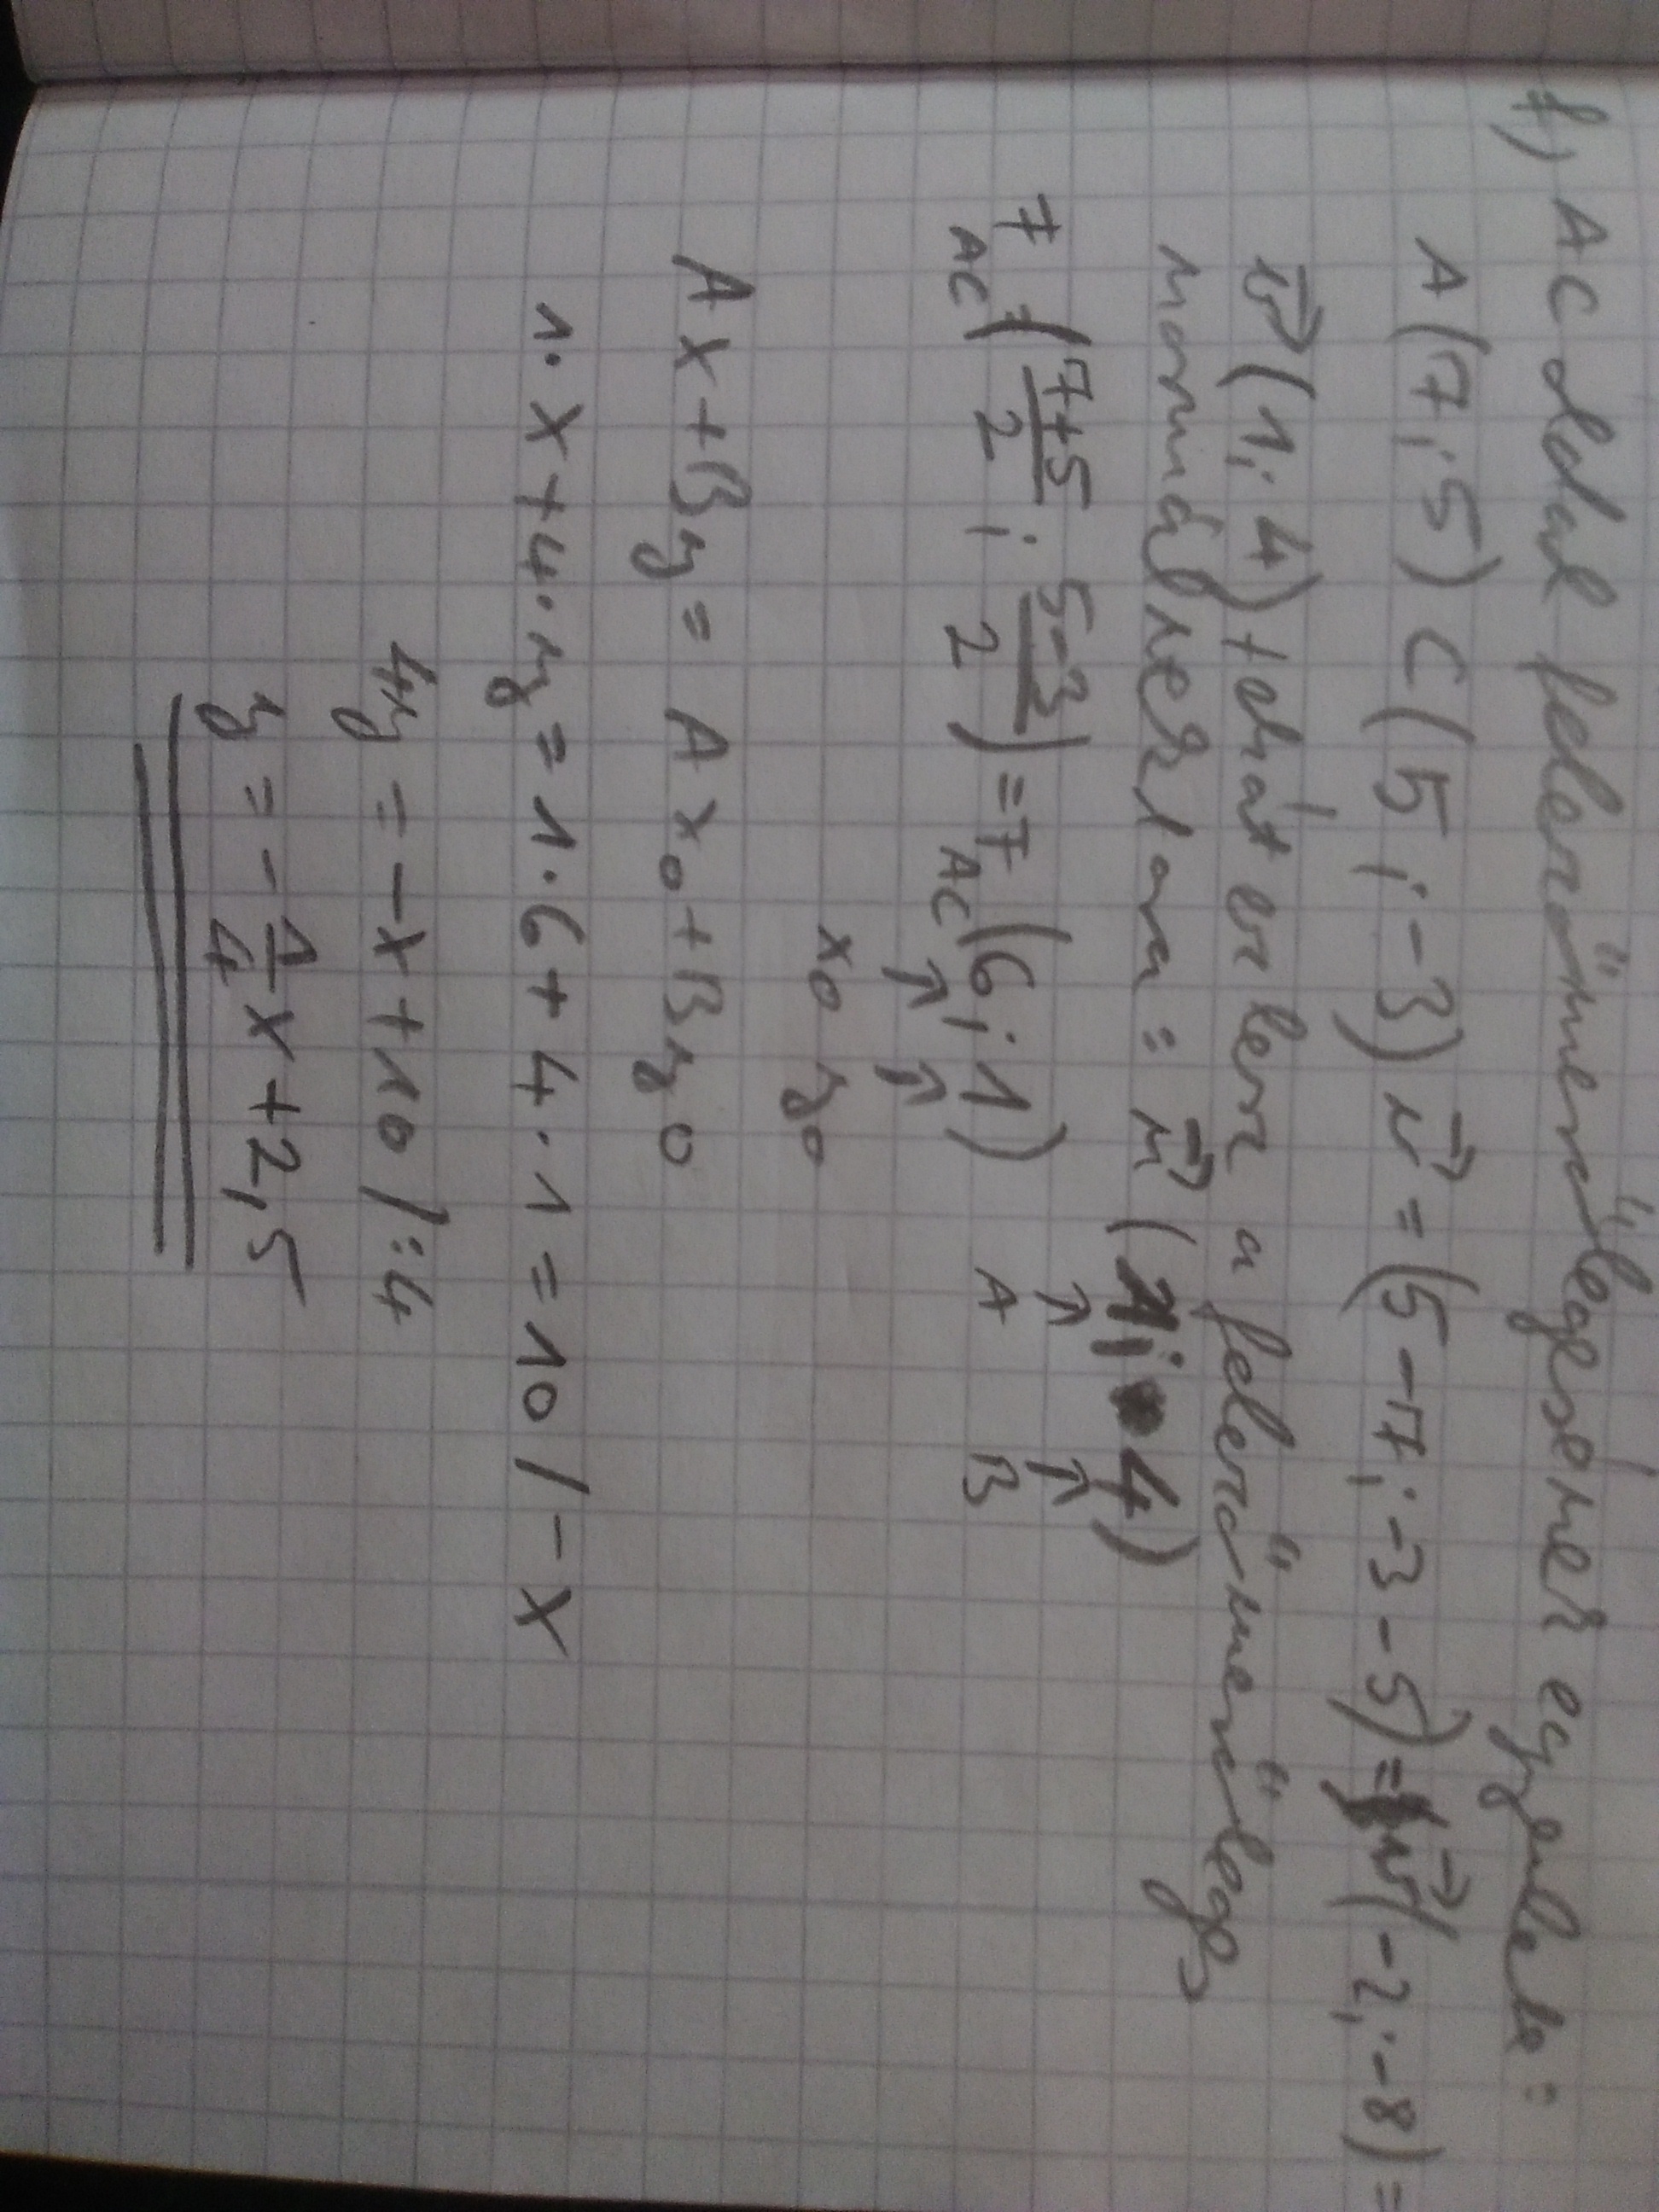 f) AC oldal felezőmerőlegesének egyenlete:
A(7;5) C(5;-3) v⃗ = (5-7;-3-5) = v⃗(-2;-8) =
v⃗(1;4) tehát ez lesz a felezőmerőleges
normálvektora: n⃗(1;4)
↑ ↑
A B
F_AC = ((7+5)/2 ; (5-3)/2) = F_AC(6;1)
↑ ↑
x₀ y₀
Ax+By = Ax₀+By₀
1·x+4·y = 1·6+4·1 = 10 /-x
4y = -x+10 /:4
y = -1/4 x+2,5